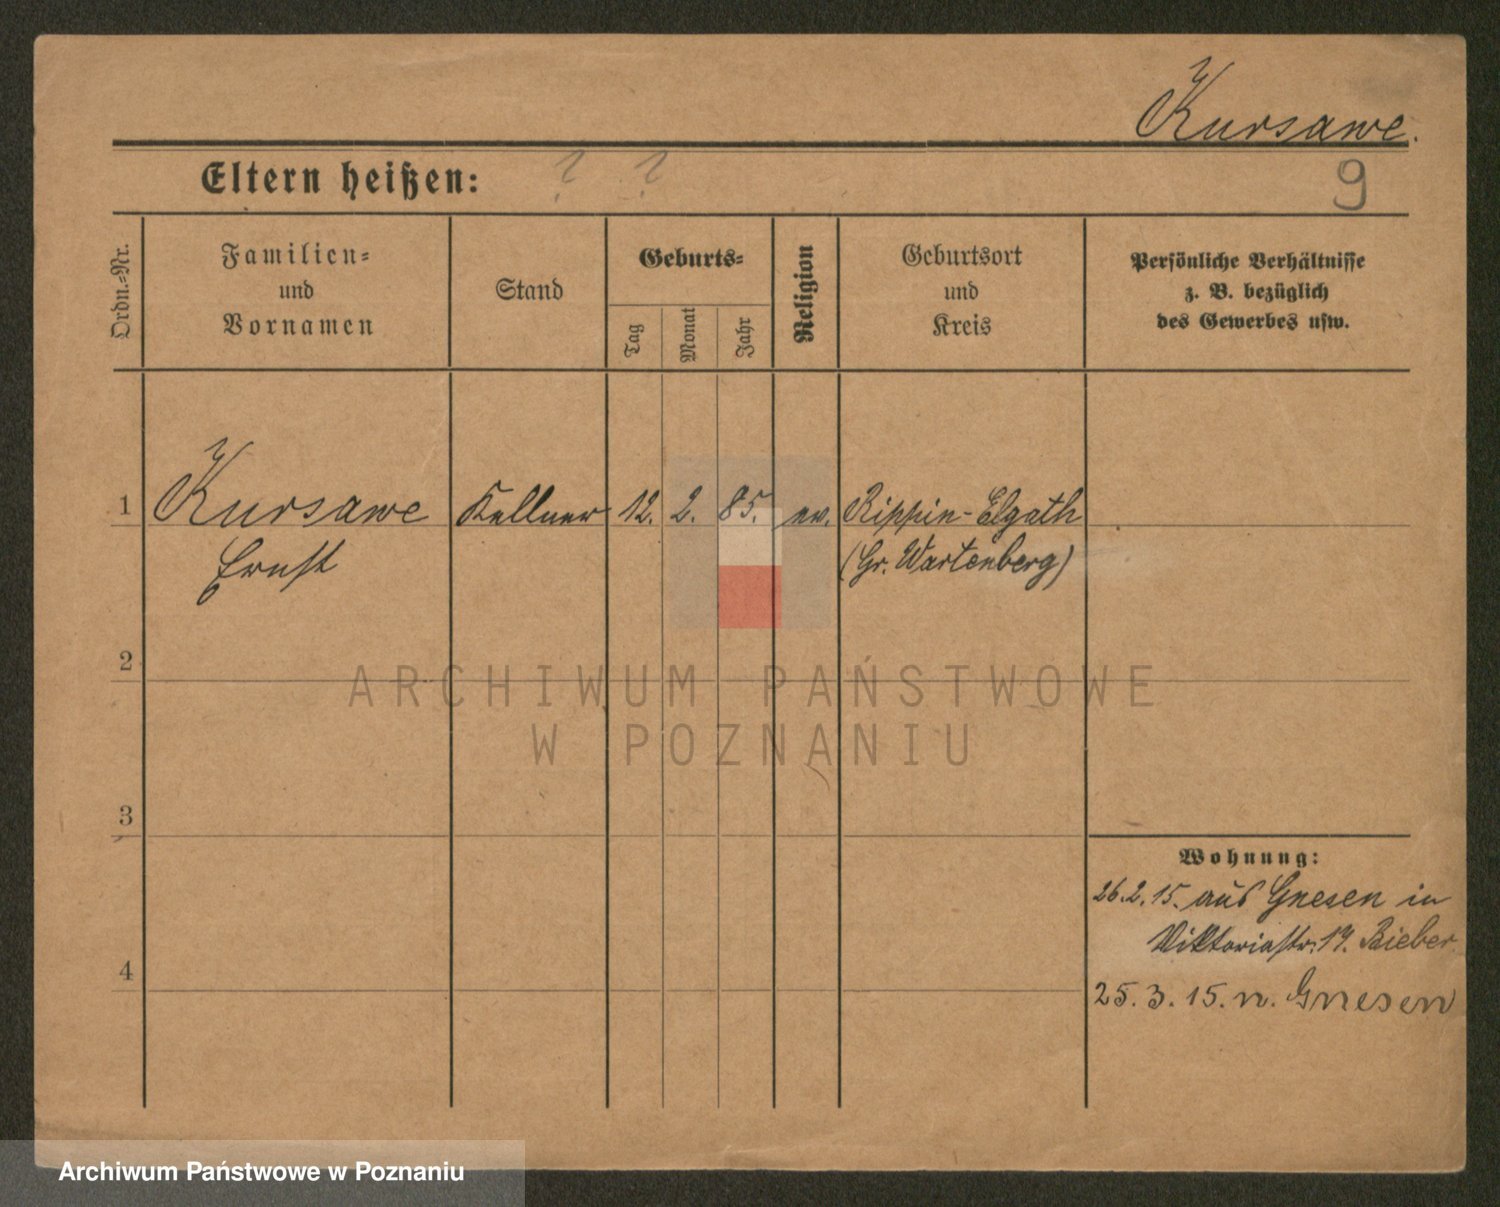 Kursawe.
Eltern heißen: ? ?
9
Ordn.-Nr.
Familien-
und
Vornamen
Stand
Geburts-
Tag
Monat
Jahr
Religion
Geburtsort
und
Kreis
Persönliche Verhältnisse
z. B. bezüglich
des Gewerbes usw.
1 Kursawe Kellner 12. 2. 85. ev. Rippin-Elgath
Ernst (Gr. Wartenberg)
2
ARCHIWUM PAŃSTWOWE
W POZNANIU
3
Wohnung:
26.2.15. aus Gnesen in
Viktoriastr. 19. Bieber
4
25.3.15. n. Gnesen
Archiwum Państwowe w Poznaniu